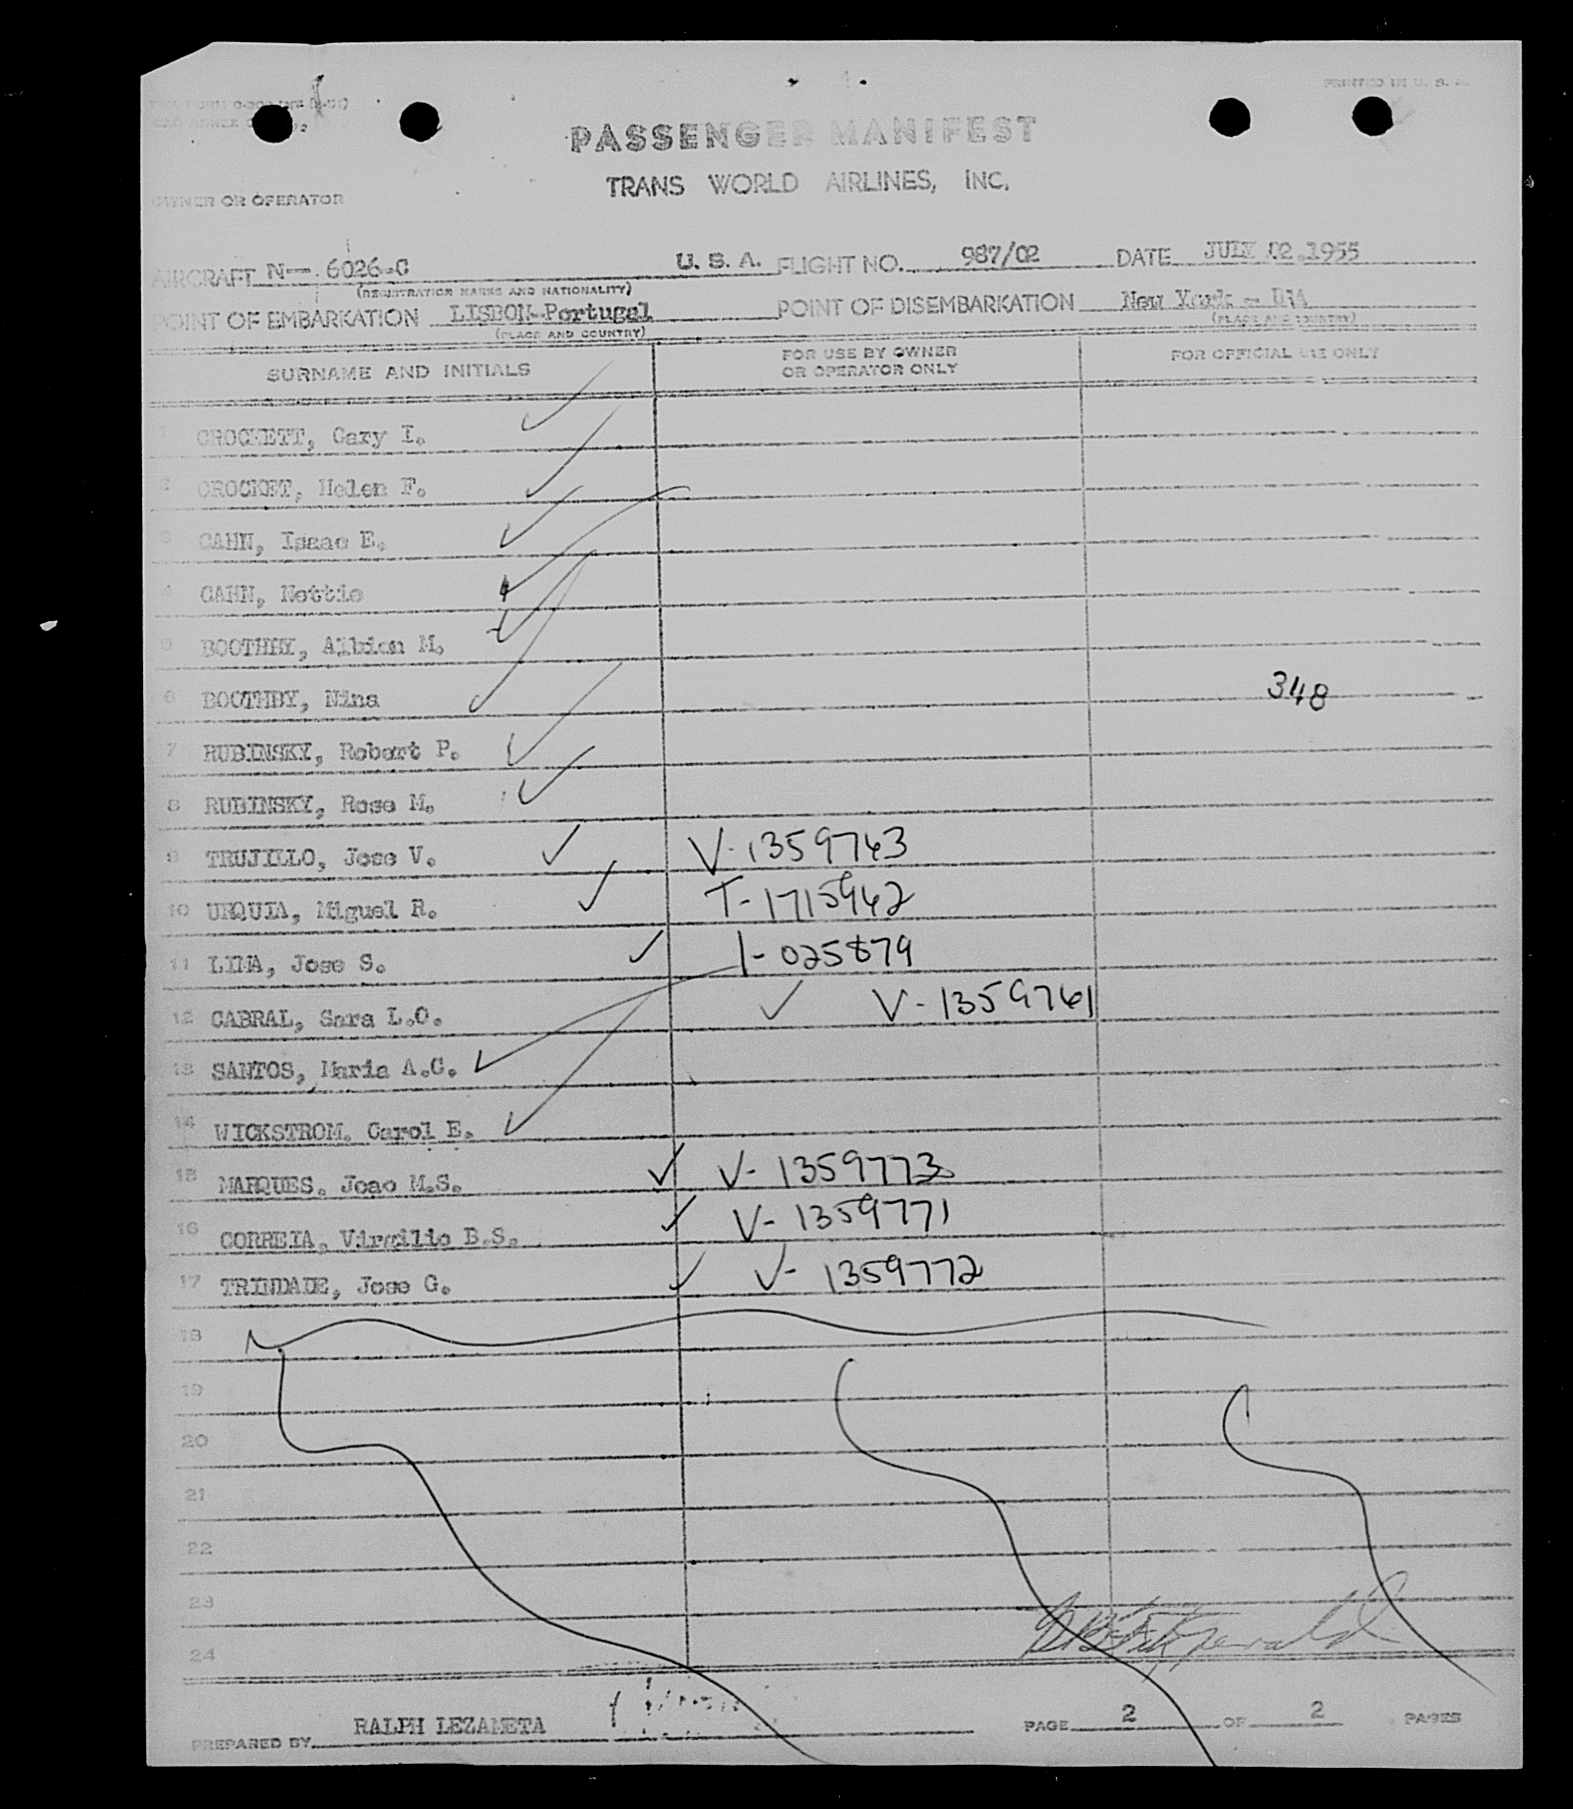 PRINTED IN U. S. A.
PASSENGER MANIFEST
TRANS WORLD AIRLINES, INC.
OWNER OR OPERATOR
AIRCRAFT N--. 6026-C U. S. A. FLIGHT NO. 987/02 DATE JULY 02,1955
(REGISTRATION MARKS AND NATIONALITY)
POINT OF EMBARKATION LISBON-Portugal POINT OF DISEMBARKATION New York -
(PLACE AND COUNTRY) (PLACE AND COUNTRY)
SURNAME AND INITIALS FOR USE BY OWNER OR OPERATOR ONLY FOR OFFICIAL USE ONLY
1 CROCKETT, Gary I.
2 CROCKET, Helen F.
3 CAHN, Isaac E.
4 CAHN, Nettie
5 BOOTHBY, Albion M.
6 BOOTHBY, Nina 348
7 RUBINSKY, Robert P.
8 RUBINSKY, Rose M.
9 TRUJILLO, Jose V. V-1359763
10 URQUIA, Miguel R. T-1715962
11 LIMA, Jose S. I-025879
12 CABRAL, Sara L.O. V-1359761
13 SANTOS, Maria A.C.
14 WICKSTROM. Carol E.
15 MARQUES. Joao M.S. V-1359773
16 CORREIA, Virgilio B.S. V-1359771
17 TRINDADE, Jose G. V-1359772
18
19
20
21
22
23
24
PREPARED BY RALPH LEZAMETA PAGE 2 OF 2 PAGES